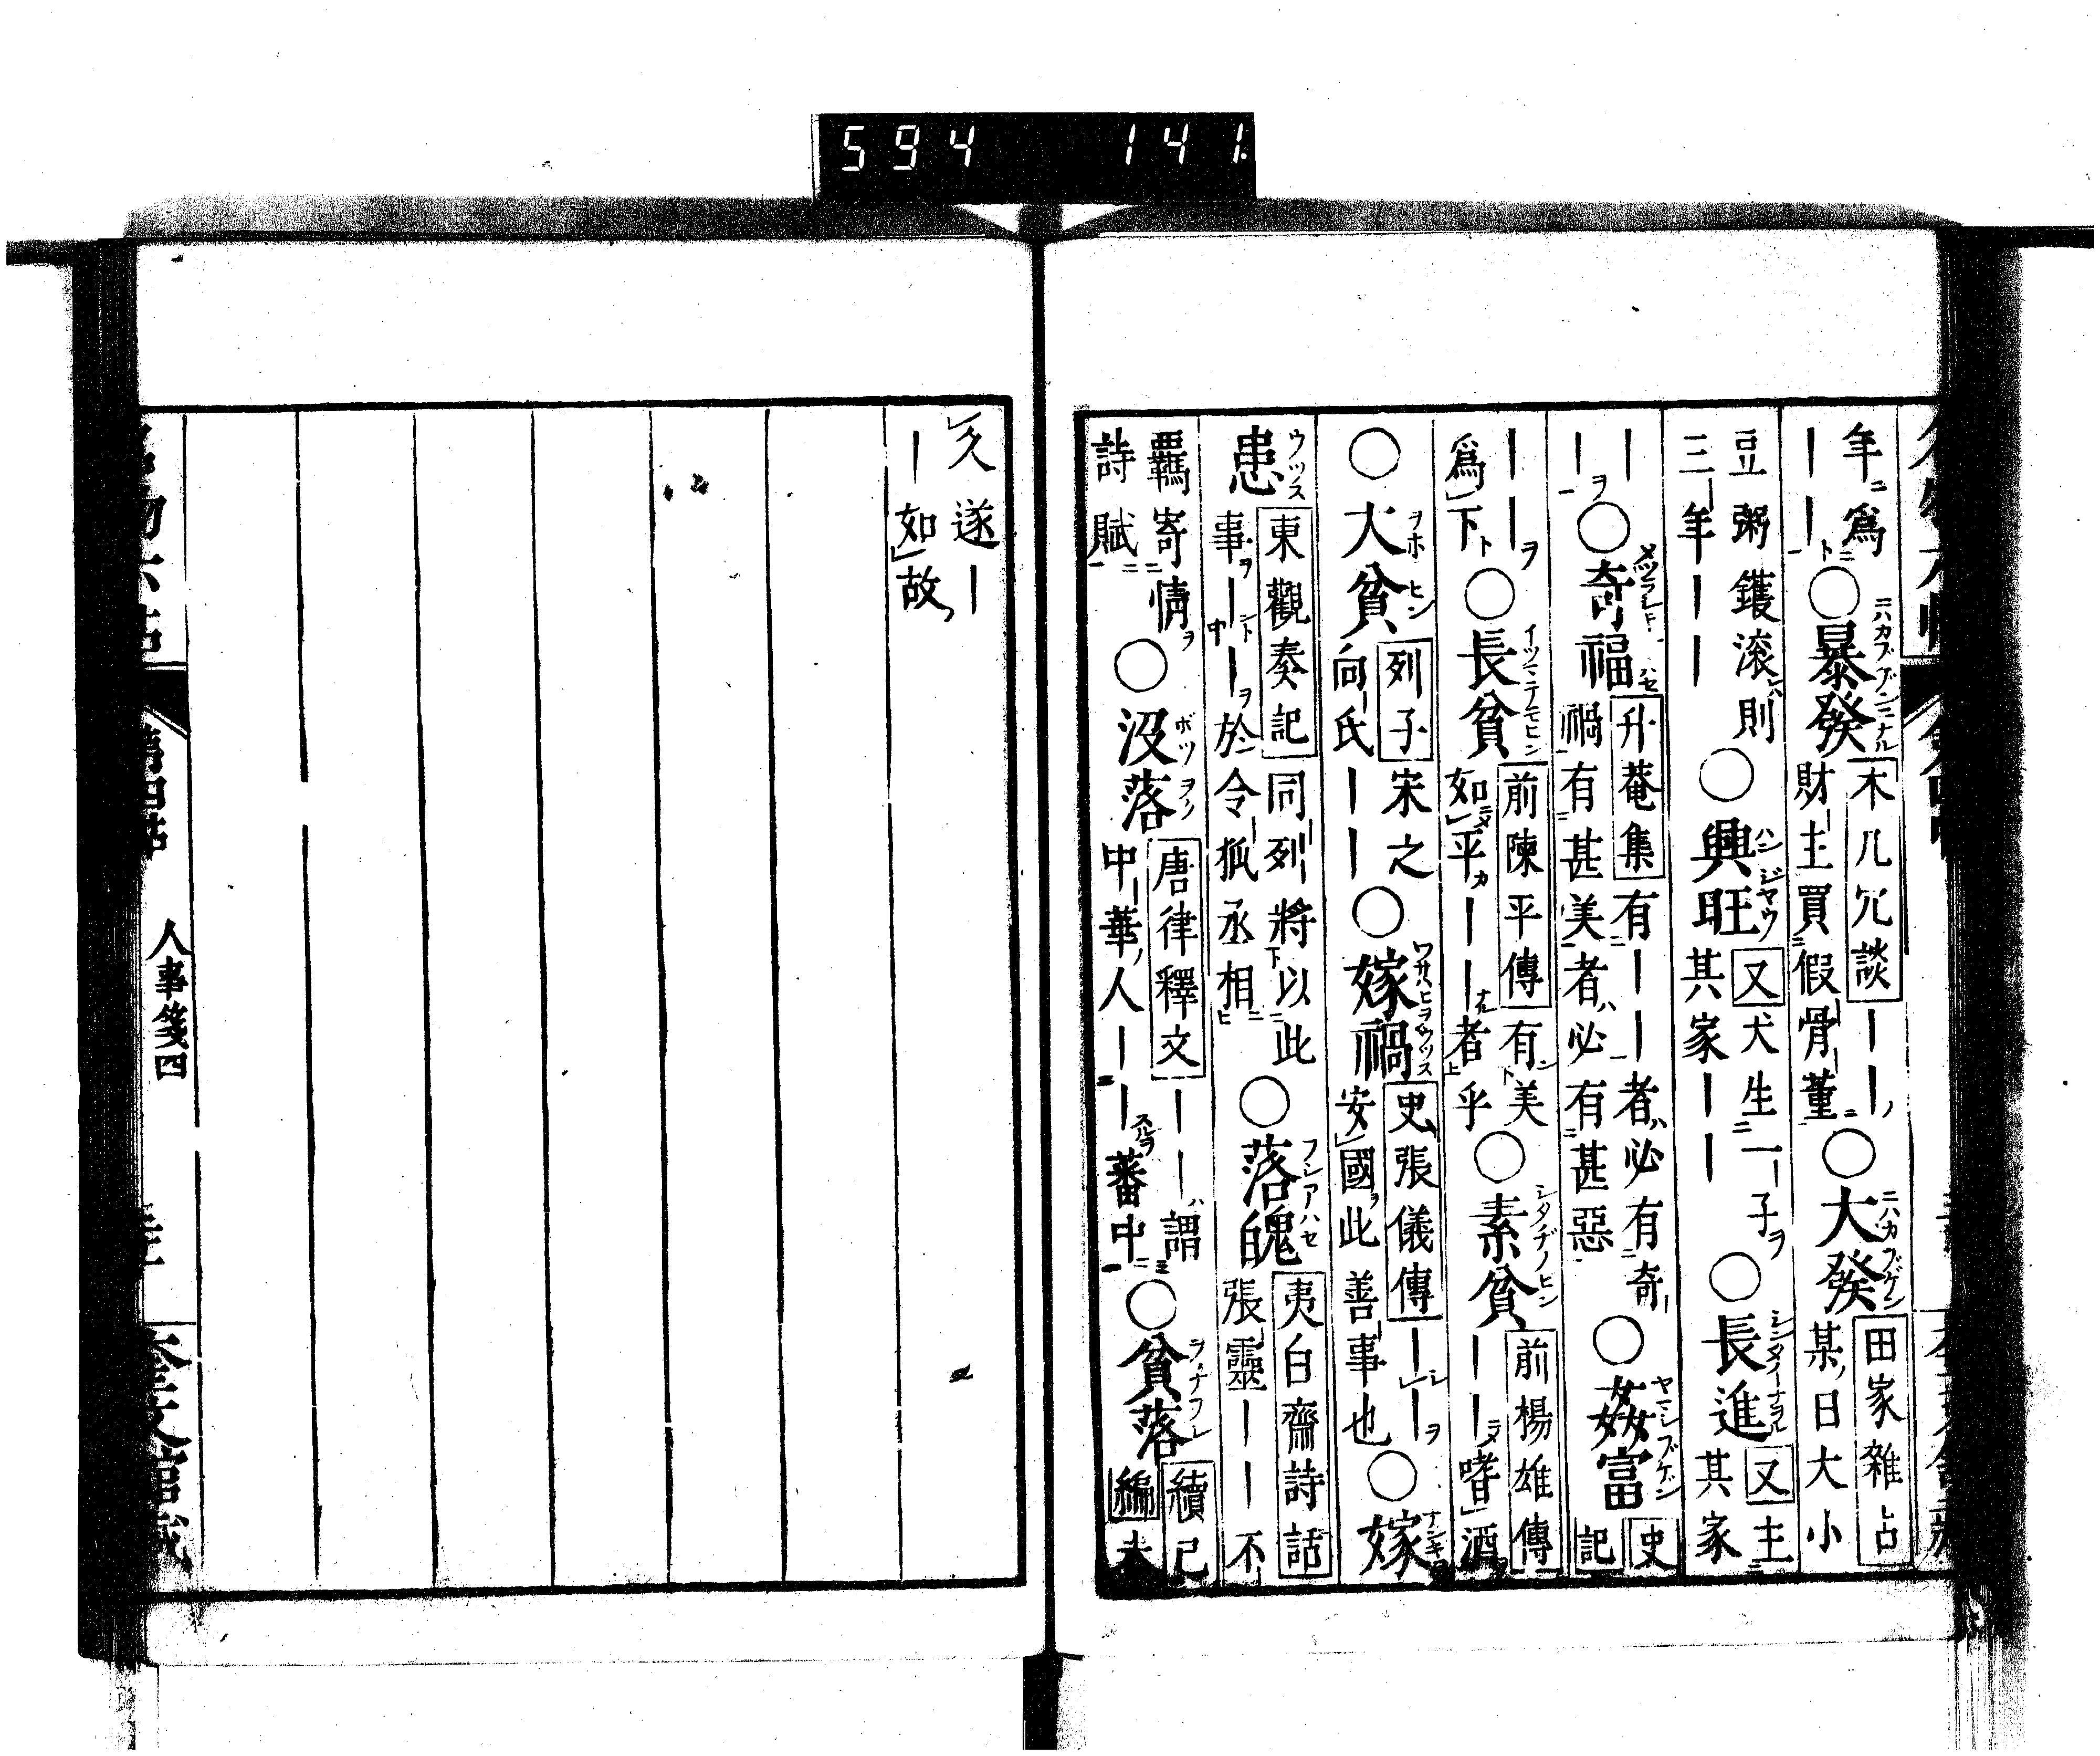 594 141
年爲
｜｜○暴發 木几冗談 ｜｜
財主買假骨董○大發 田家雜占 某日大小
豆粥鑊滚則
三年｜｜○興旺 又 犬生一子
其家｜｜○長進 又 主
其家
｜
｜○奇福 升菴集 有｜｜者必有奇
禍有甚美者必有甚惡○姦富 史
記
｜｜
爲下○長貧 前陳平傳 有美
如平｜｜者乎○素貧 前楊雄傳
｜｜嗜酒
○大貧 列子 宋之
向氏｜｜○嫁禍 史張儀傳 ｜｜
安國此善事也○嫁
患 東觀奏記 同列將以此
事｜｜於令狐丞相○落魄 夷白齋詩話
張靈｜｜不
羈寄情
詩賦○沒落 唐律釋文 ｜｜謂
中華人｜｜蕃中○貧落 續己
編
久遂｜
｜如故
人事箋四